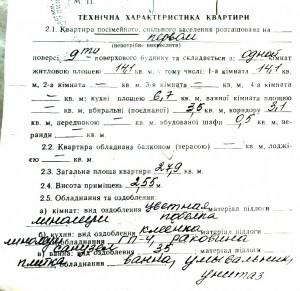 М. П.
ТЕХНІЧНА ХАРАКТЕРИСТИКА КВАРТИРИ
2.1. Квартира посімейного, спільного заселення розташована на
первом
(непотрібне викреслити)
поверсі 9ти поверхового будинку та складається з одной кімнат
житловою площею 14,1 кв. м, у тому числі: 1-а кімната 14,1 кв.
м, 2-а кімната — кв. м, 3-я кімната — кв. м, 4-а кімната
— кв. м; кухні площею 6,7 кв. м, ванної кімнати площею
— кв. м, вбиральні (поєднаної) 3,5 кв. м, коридору 3,1
кв. м, передпокою — кв. м, вбудованої шафи 0,5 кв. м, ве-
ранди — кв. м.
2.2. Квартира обладнана балконом (терасою) — кв. м, лоджі-
єю — кв. м.
2.3. Загальна площа квартири 27,9 кв. м.
2.4. Висота приміщень 2,55 м.
2.5. Обладнання та оздоблення:
а) кімнат: вид оздоблення цветная матеріал підлоги
линолеум побелка
б) кухні: вид оздоблення клеенка матеріал підлоги
линолеум обладнання ГП-4, раковина
в) ванна: вид оздоблення матеріал підлоги
плитка обладнання ванна, умывальник,
унитаз